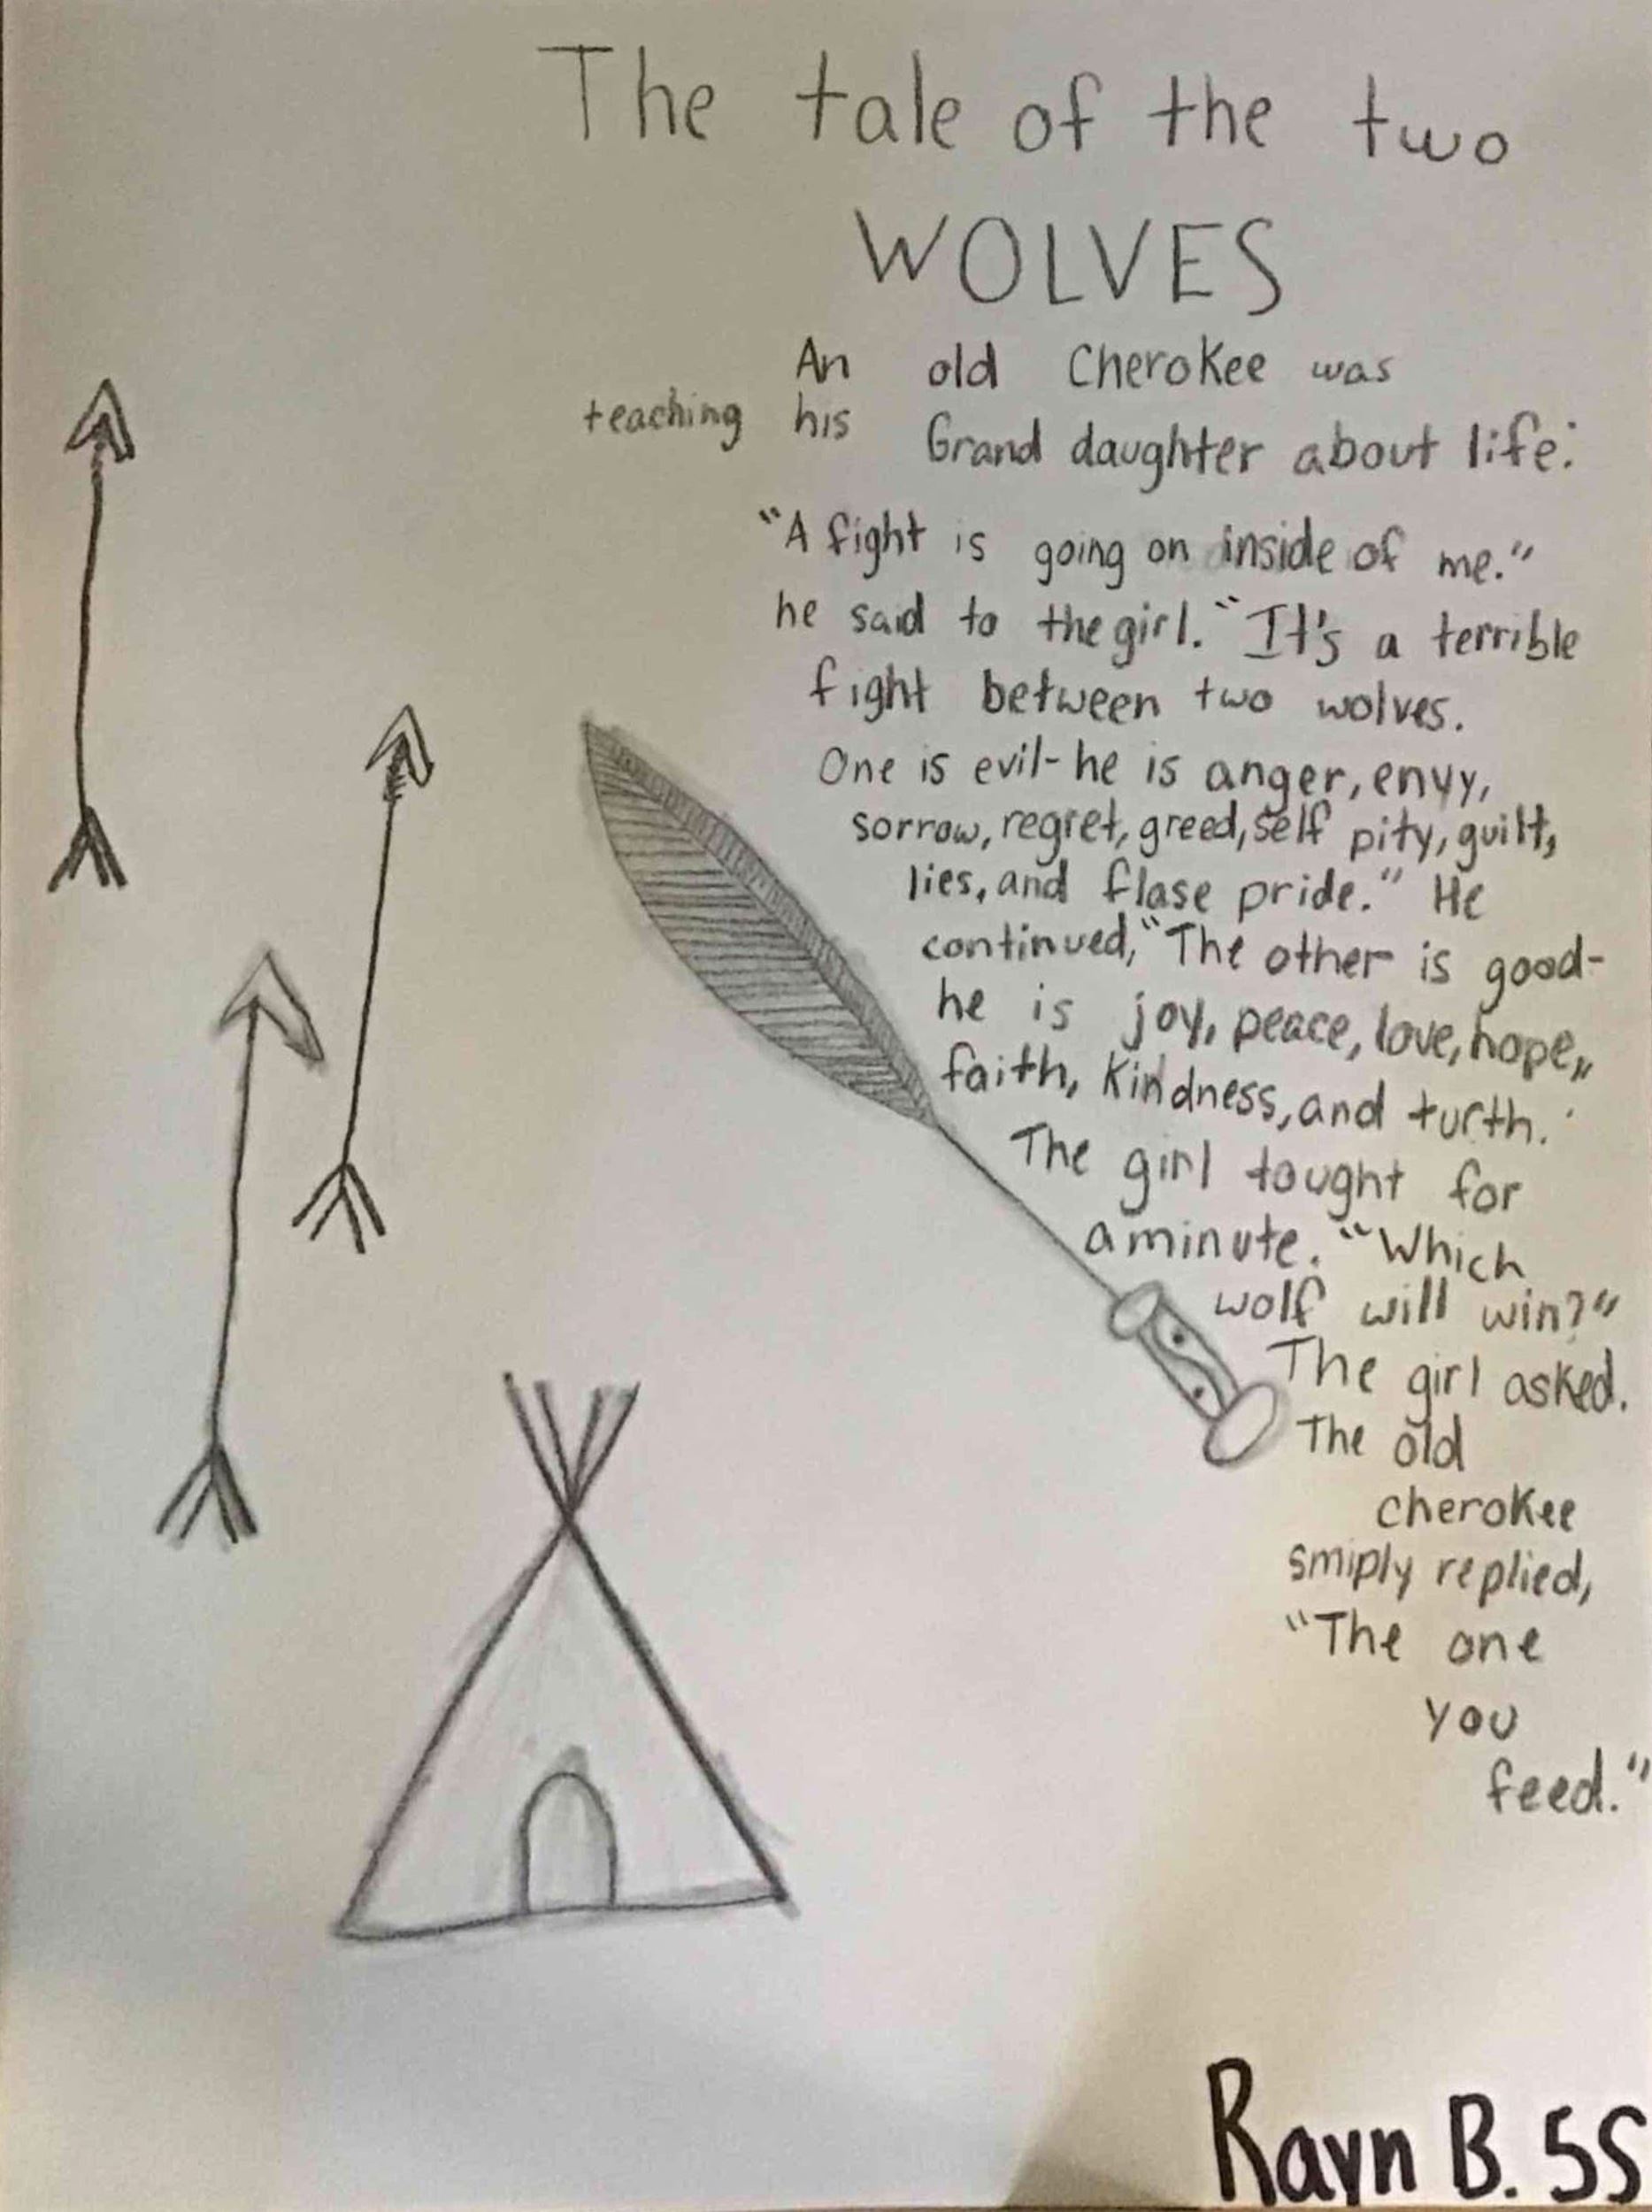 The tale of the two
WOLVES
An old Cherokee was
teaching his Grand daughter about life:
"A fight is going on inside of me."
he said to the girl. "It's a terrible
fight between two wolves.
One is evil- he is anger, envy,
sorrow, regret, greed, self pity, guilt,
lies, and flase pride." He
continued, "The other is good-
he is joy, peace, love, hope,
faith, kindness, and turth."
The girl tought for
a minute. "Which
wolf will win?"
The girl asked.
The old
cherokee
smiply replied,
"The one
you
feed."
Rayn B. 5S